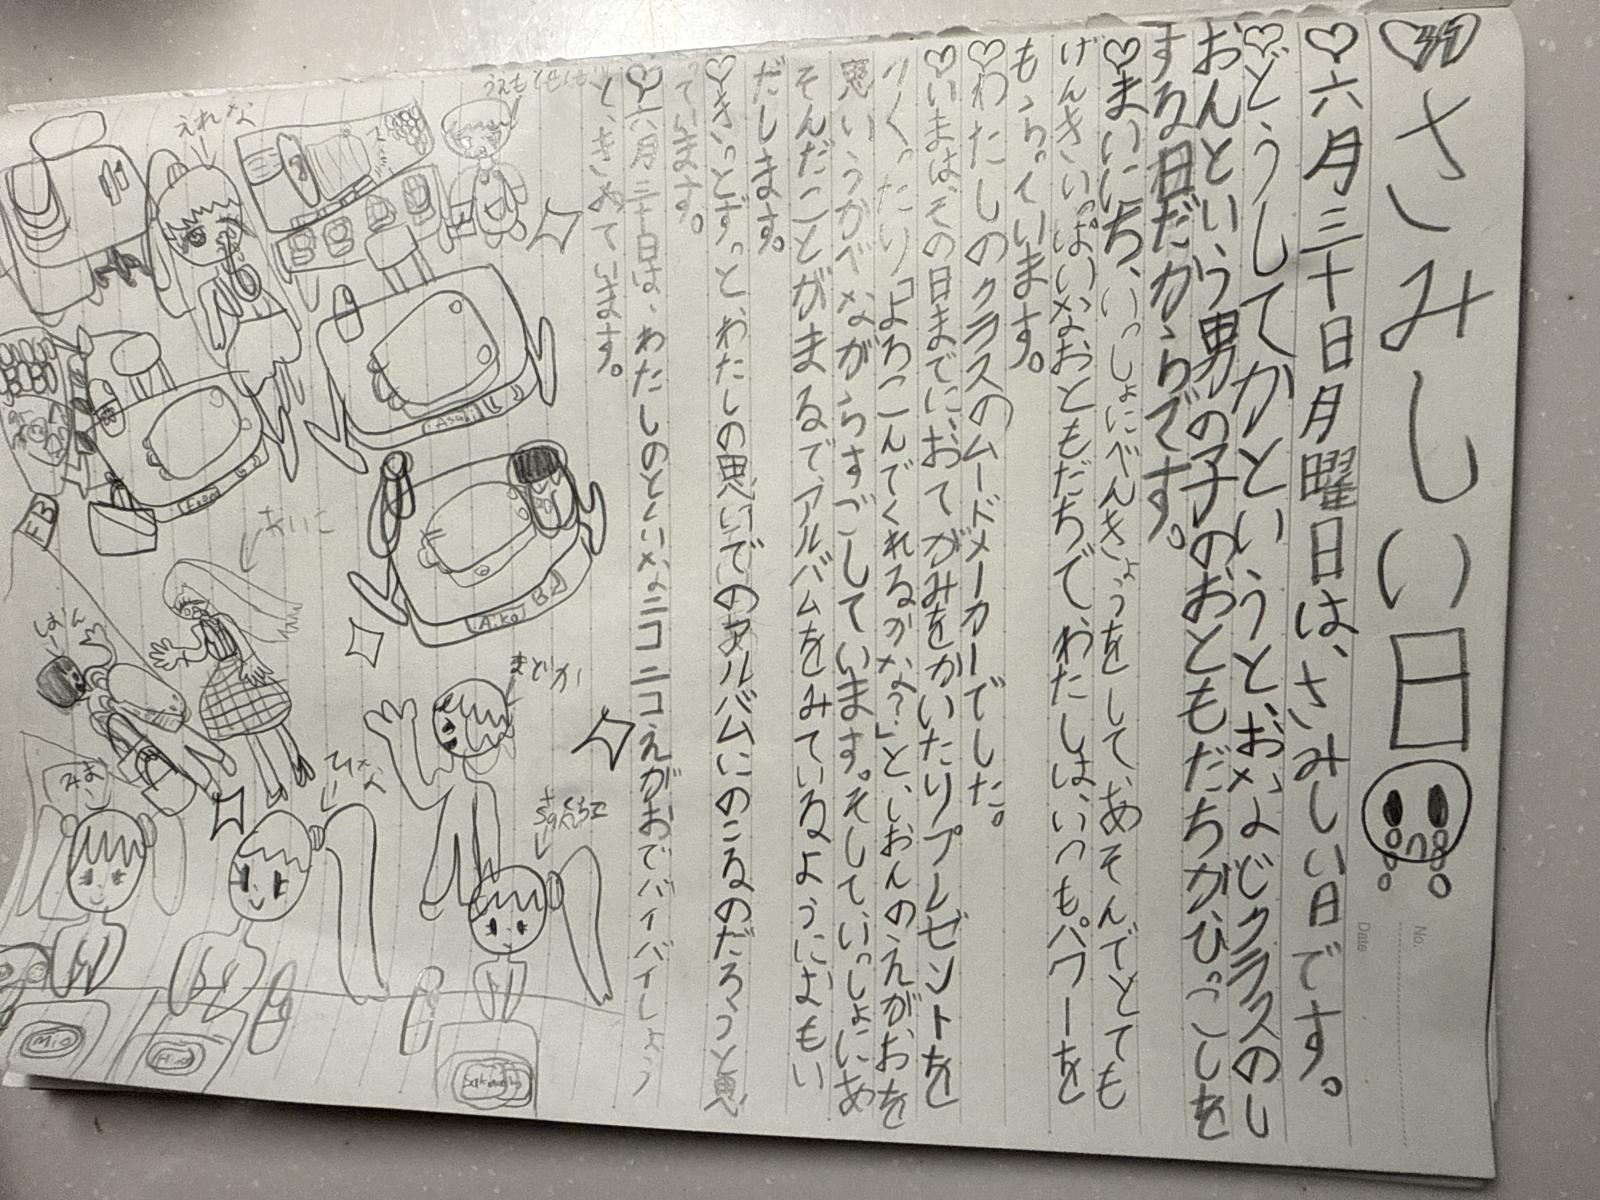 さみしい日
六月三十日月曜日は、さみしい日です。
どうしてかというと、おなじクラスのし
おんという男の子のおともだちがひっこしを
する日だからです。
まいにち、いっしょにべんきょうをして、あそんでとても
げんきいっぱいなおともだちで、わたしは、いつも、パワーを
もらっています。
わたしのクラスのムードメーカーでした。
いまは、その日までに、おてがみをかいたりプレゼントを
つくったり「よろこんでくれるかな？」と、しおんのえがおを
思いうかべながらすごしています。そして、いっしょにあ
そんだことがまるで、アルバムをみているようによもい
だします。
きっとずっと、わたしの思いでのアルバムにのこるのだろうと思
っています。
六月三十日は、わたしのとくいなニコニコえがおでバイバイしよう
と、きめています。
えれな
あいこ
しおん
まどか
ひな
みお
Asahi
Aiko
Mio
Hina
No.
Date